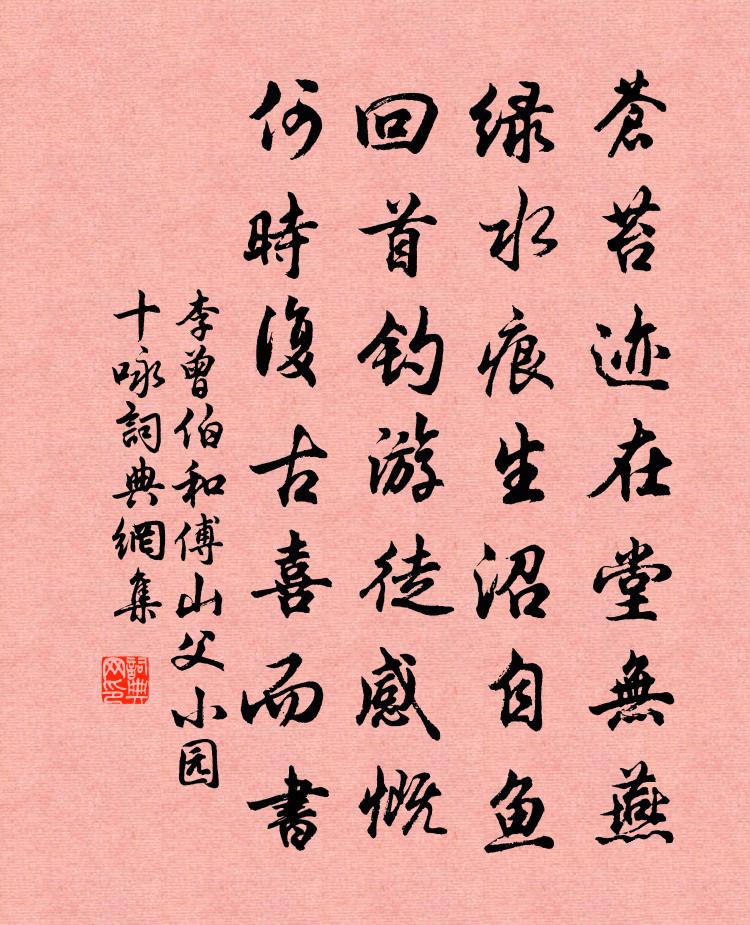 蒼苔迹在堂無燕
绿水痕生沼自鱼
回首钓游徒感慨
何時復古喜而書
李曾伯和傅山父小园
十咏詞典網集
詞典网印